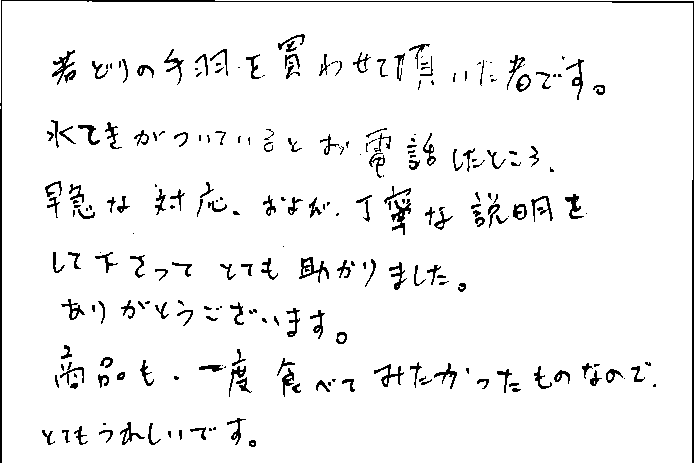 若どりの手羽を買わせて頂いた者です。
水てきがついているとお電話したところ、
早急な対応、およが、丁寧な説明を
して下さってとても助かりました。
ありがとうございます。
商品も、一度食べてみたかったものなので、
とてもうれしいです。